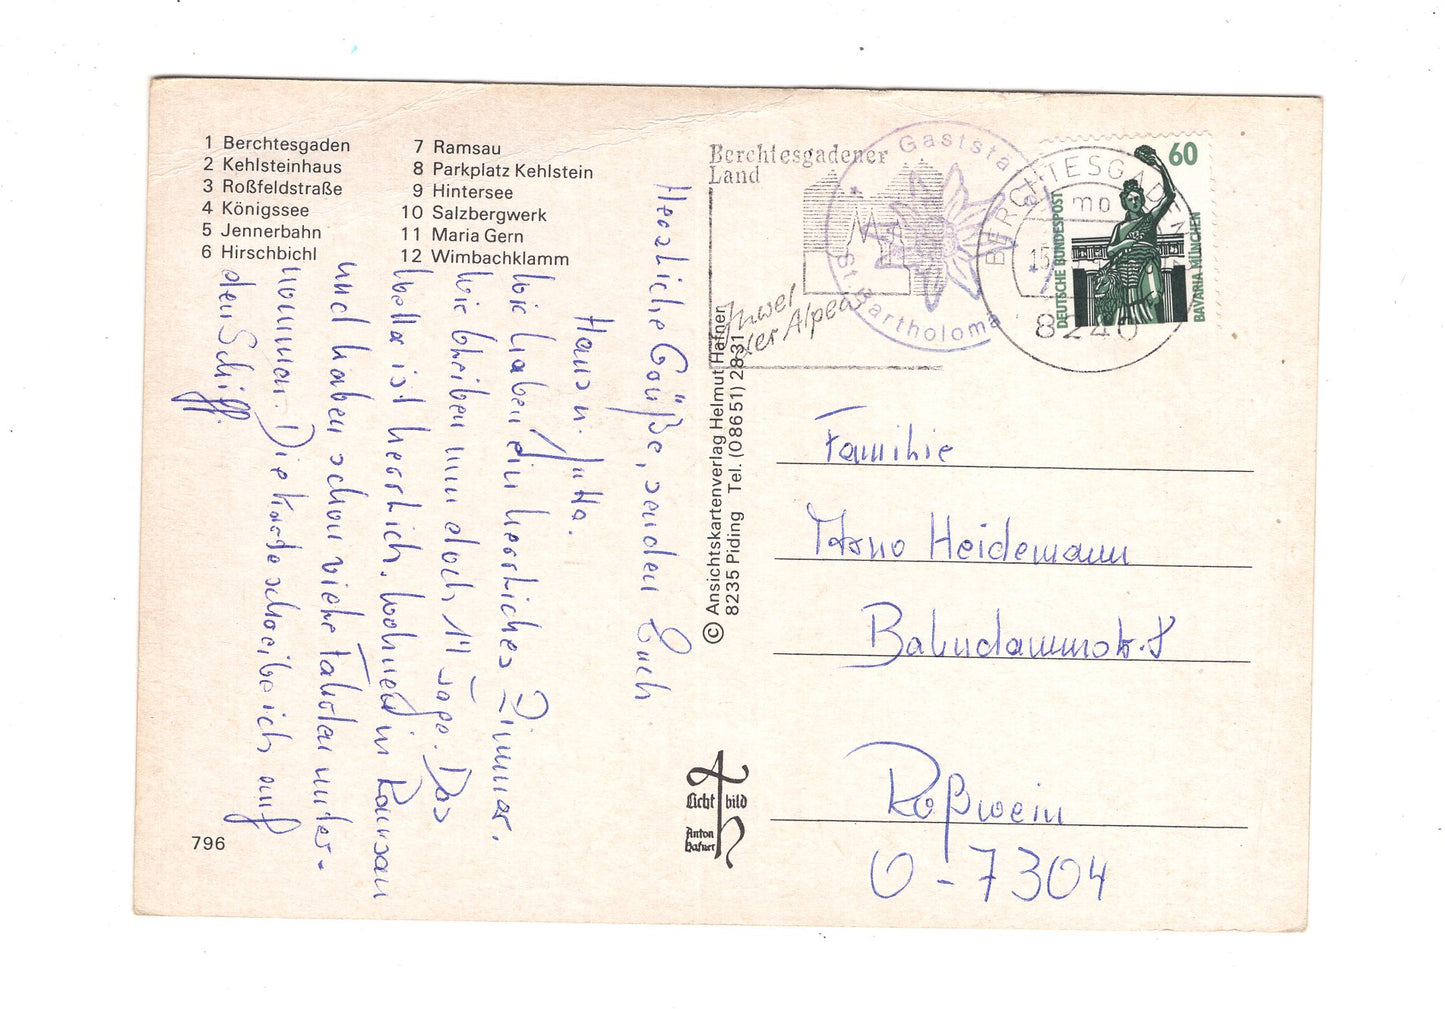 1 Berchtesgaden
2 Kehlsteinhaus
3 Roßfeldstraße
4 Königssee
5 Jennerbahn
6 Hirschbichl
7 Ramsau
8 Parkplatz Kehlstein
9 Hintersee
10 Salzbergwerk
11 Maria Gern
12 Wimbachklamm
Herzliche Grüße, senden Euch
Hans u. Jutta.
Wir haben ein herrliches Zimmer.
Wir bleiben nun doch 14 Tage. Das
Wetter ist herrlich. Wohnen in Ramsau
und haben schon viele Fahrten unter-
nommen. Die Karte schreibe ich auf
den Schiff.
796
© Ansichtskartenverlag Helmut Hafner
8235 Piding Tel. (08651) 2831
Licht bild
Anton Hafner
Berchtesgadener
Land
Juwel
der Alpen
Gaststä
St. Bartholomä
BERCHTESGADEN
mo
15
8240
60
DEUTSCHE BUNDESPOST
BAVARIA MÜNCHEN
Familie
Arno Heidemann
Bahndammstr.
Roßwein
O-7304